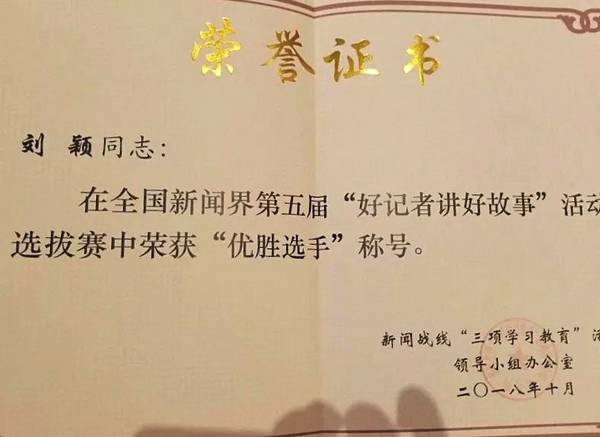 荣誉证书
刘颖同志：
在全国新闻界第五届“好记者讲好故事”活动
选拔赛中荣获“优胜选手”称号。
新闻战线“三项学习教育”活
领导小组办公室
二〇一八年十月